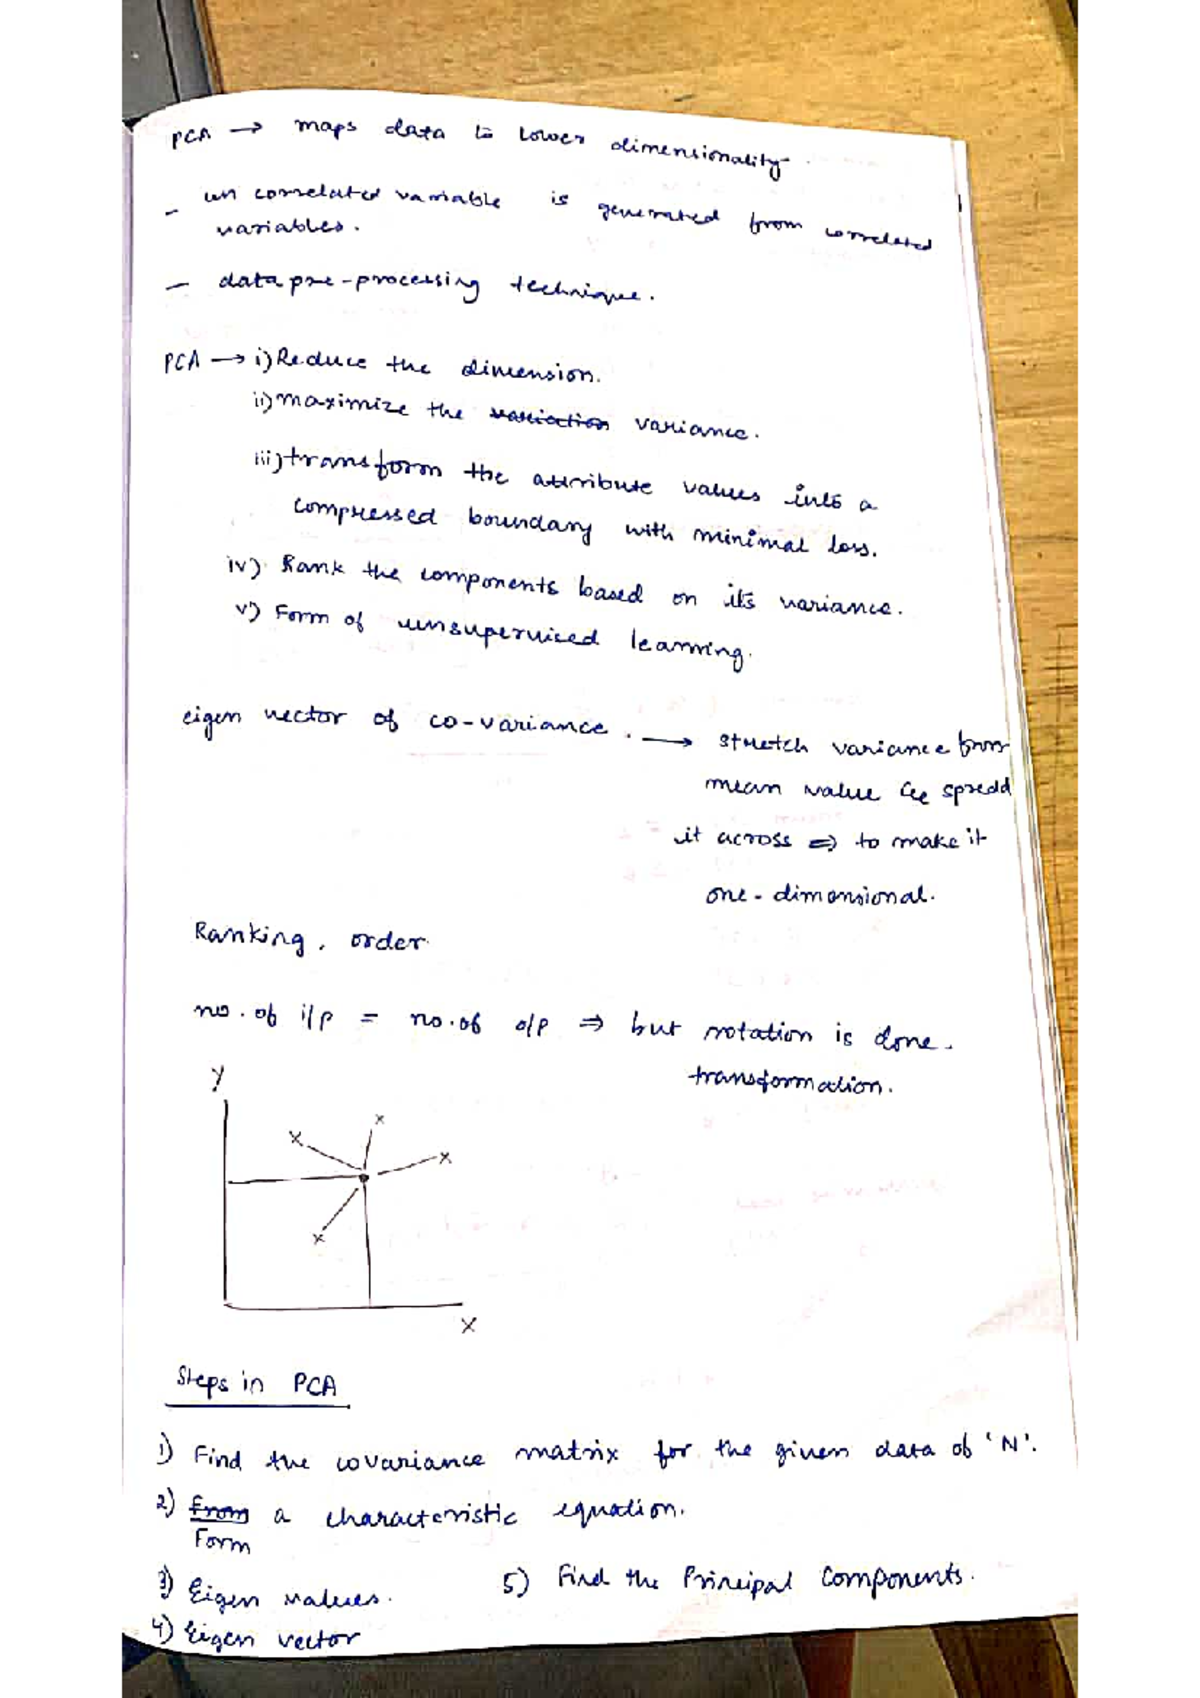 PCA → maps data to lower dimensionality.
- un correlated variable is generated from correlated
variables.
- data pre-processing technique.
PCA → i) Reduce the dimension.
ii) maximize the variation variance.
iii) transform the attribute values into a
compressed boundary with minimal loss.
iv) Rank the components based on its variance.
v) Form of unsupervised learning.
eigen vector of co-variance. → stretch variance from
mean value & spredd
it across ⇒ to make it
one-dimensional.
Ranking, order.
no. of i/p = no. of o/p ⇒ but rotation is done.
transformation.
Y
x
x
x
x
X
Steps in PCA
1) Find the covariance matrix for the given data of 'N'.
2) From a characteristic equation.
Form
3) Eigen values.
4) Eigen vector
5) Find the Principal Components.